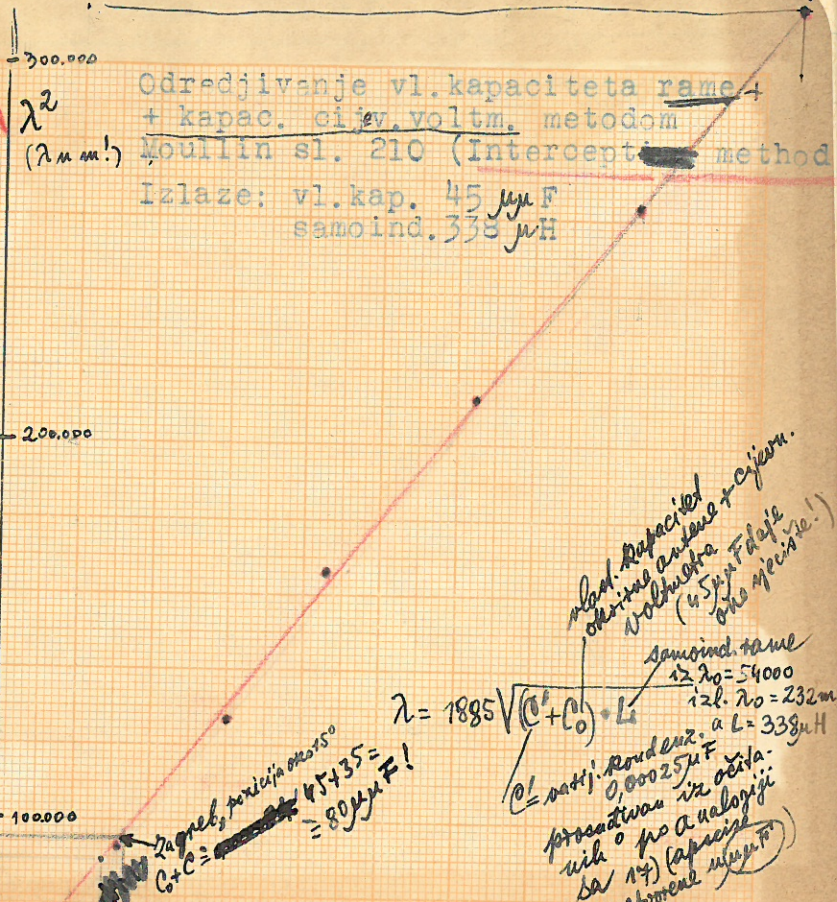 300.000
λ²
(λ u m!)
Odredjivanje vl.kapaciteta rame +
+ kapac. cijev.voltm. metodom
Moullin sl. 210 (Intercept method
Izlaze: vl.kap. 45 μμF
samoind. 338 μH
200.000
vlast. kapacitet
okvirne antene + cijevn.
voltmetra
(45μμF daje
samoind. rame
iz λ₀² = 54000
izl. λ₀ = 232m
a L = 338μH
λ = 1885 √(C' + C₀) · L
C' = varij. kondenz.
0,00025μF
iz očita-
nih ° po analogiji
sa 17) (apscise
μμF)
100.000
Zagreb, pozicija oko 15°
C₀+C = 45+35 =
= 80μμF!